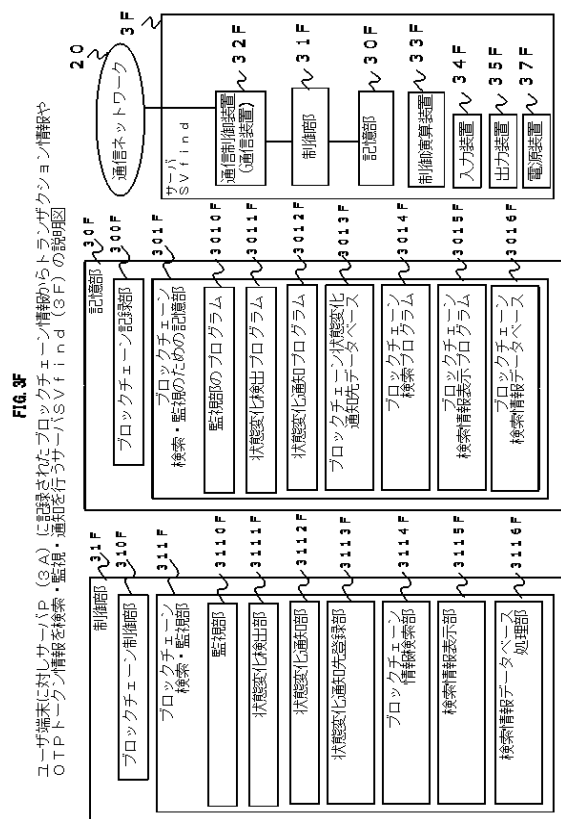 FIG.3F
ユーザ端末に対しサーバP（3A）に記録されたブロックチェーン情報からトランザクション情報や
OTPトークン情報を検索・監視・通知を行うサーバSVfind（3F）の説明図
31F
制御部
310F
ブロックチェーン制御部
311F
ブロックチェーン
検索・監視部
3110F
監視部
3111F
状態変化検出部
3112F
状態変化通知部
3113F
状態変化通知先登録部
3114F
ブロックチェーン
情報検索部
3115F
検索情報表示部
3116F
検索情報データベース
処理部
30F
記憶部
300F
ブロックチェーン記録部
301F
ブロックチェーン
検索・監視のための記憶部
3010F
監視部のプログラム
3011F
状態変化検出プログラム
3012F
状態変化通知プログラム
3013F
ブロックチェーン状態変化
通知先データベース
3014F
ブロックチェーン
検索プログラム
3015F
ブロックチェーン
検索情報表示プログラム
3016F
ブロックチェーン
検索情報データベース
20
通信ネットワーク
3F
サーバ
SVfind
32F
通信制御装置
(通信装置)
31F
制御部
30F
記憶部
33F
制御演算装置
34F
入力装置
35F
出力装置
37F
電源装置